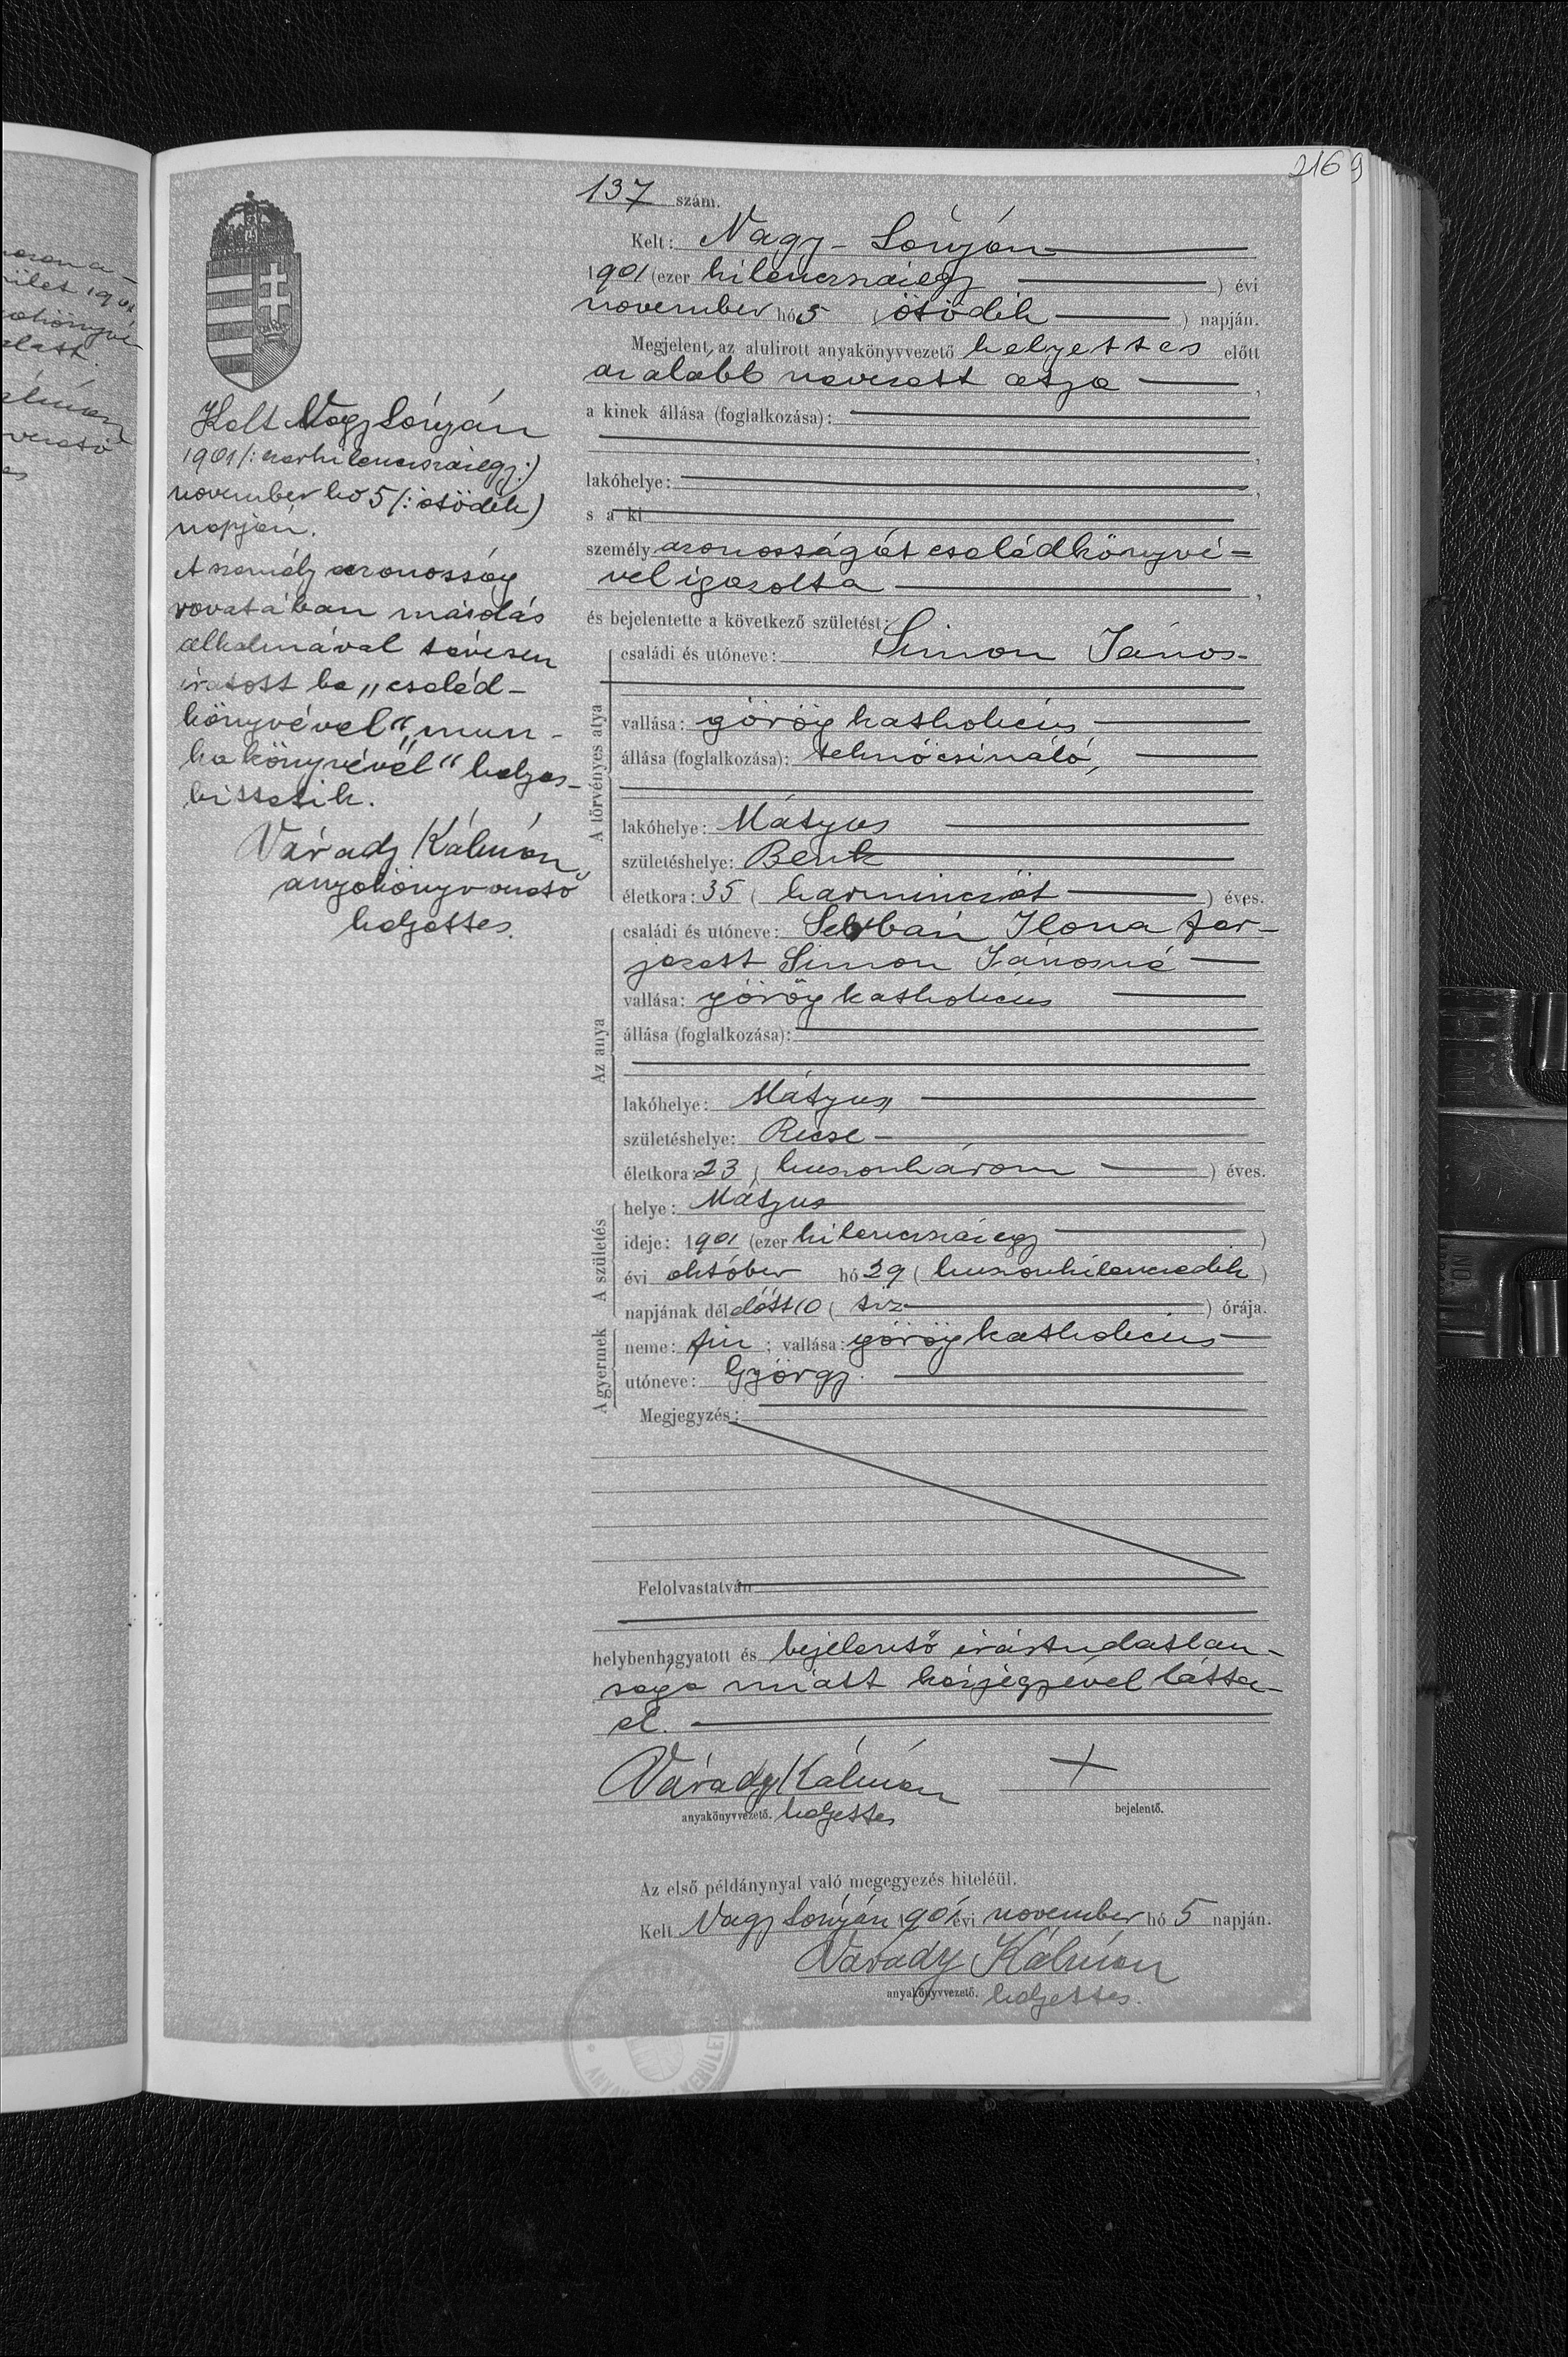 2169
137 szám.
Kelt: Nagy-Lónyán
1901 (ezer kilencszázegy ) évi
november hó 5 (ötödik ) napján.
Megjelent az alulirott anyakönyvvezető helyettes előtt
az alább nevezett atya ,
a kinek állása (foglalkozása):
,
lakóhelye: ,
s a ki
személyazonosságát családkönyvé=
vel igazolta ,
és bejelentette a következő születést:
A törvényes atya
családi és utóneve: Simon János
vallása: görög katholicus
állása (foglalkozása): teknőcsináló,
lakóhelye: Mátyus
születéshelye: Benk
életkora: 35 (harmincöt ) éves.
Az anya
családi és utóneve: Serbán Ilona fér-
jezett Simon Jánosné
vallása: görög katholicus
állása (foglalkozása):
lakóhelye: Mátyus
születéshelye: Ricse
életkora: 23 (huszonhárom ) éves.
A születés
helye: Mátyus
ideje: 1901 (ezer kilencszázegy )
évi október hó 29 (huszonkilencedik)
napjának délelőtt 10 (tíz ) órája.
A gyermek
neme: fiu; vallása: görög katholicus
utóneve: György.
Megjegyzés:
Felolvastatván
helybenhagyatott és bejelentő irástudatlan-
sága miatt kézjegyével látta
el.
Várady Kálmán +
anyakönyvvezető. helyettes bejelentő.
Az első példánynyal való megegyezés hiteléül.
Kelt Nagy Lónyán 1901 évi november hó 5 napján.
Várady Kálmán
anyakönyvvezető. helyettes.
Kelt Nagy Lónyán
1901 (: ezerkilencszázegy :)
november hó 5 (: ötödik)
napján.
A személy azonosság
rovatában másolás
alkalmával tévesen
iratott be „család-
könyvével" „mun-
kakönyvével" helyes-
bittetik.
Várady Kálmán
anyakönyvvezető
helyettes.